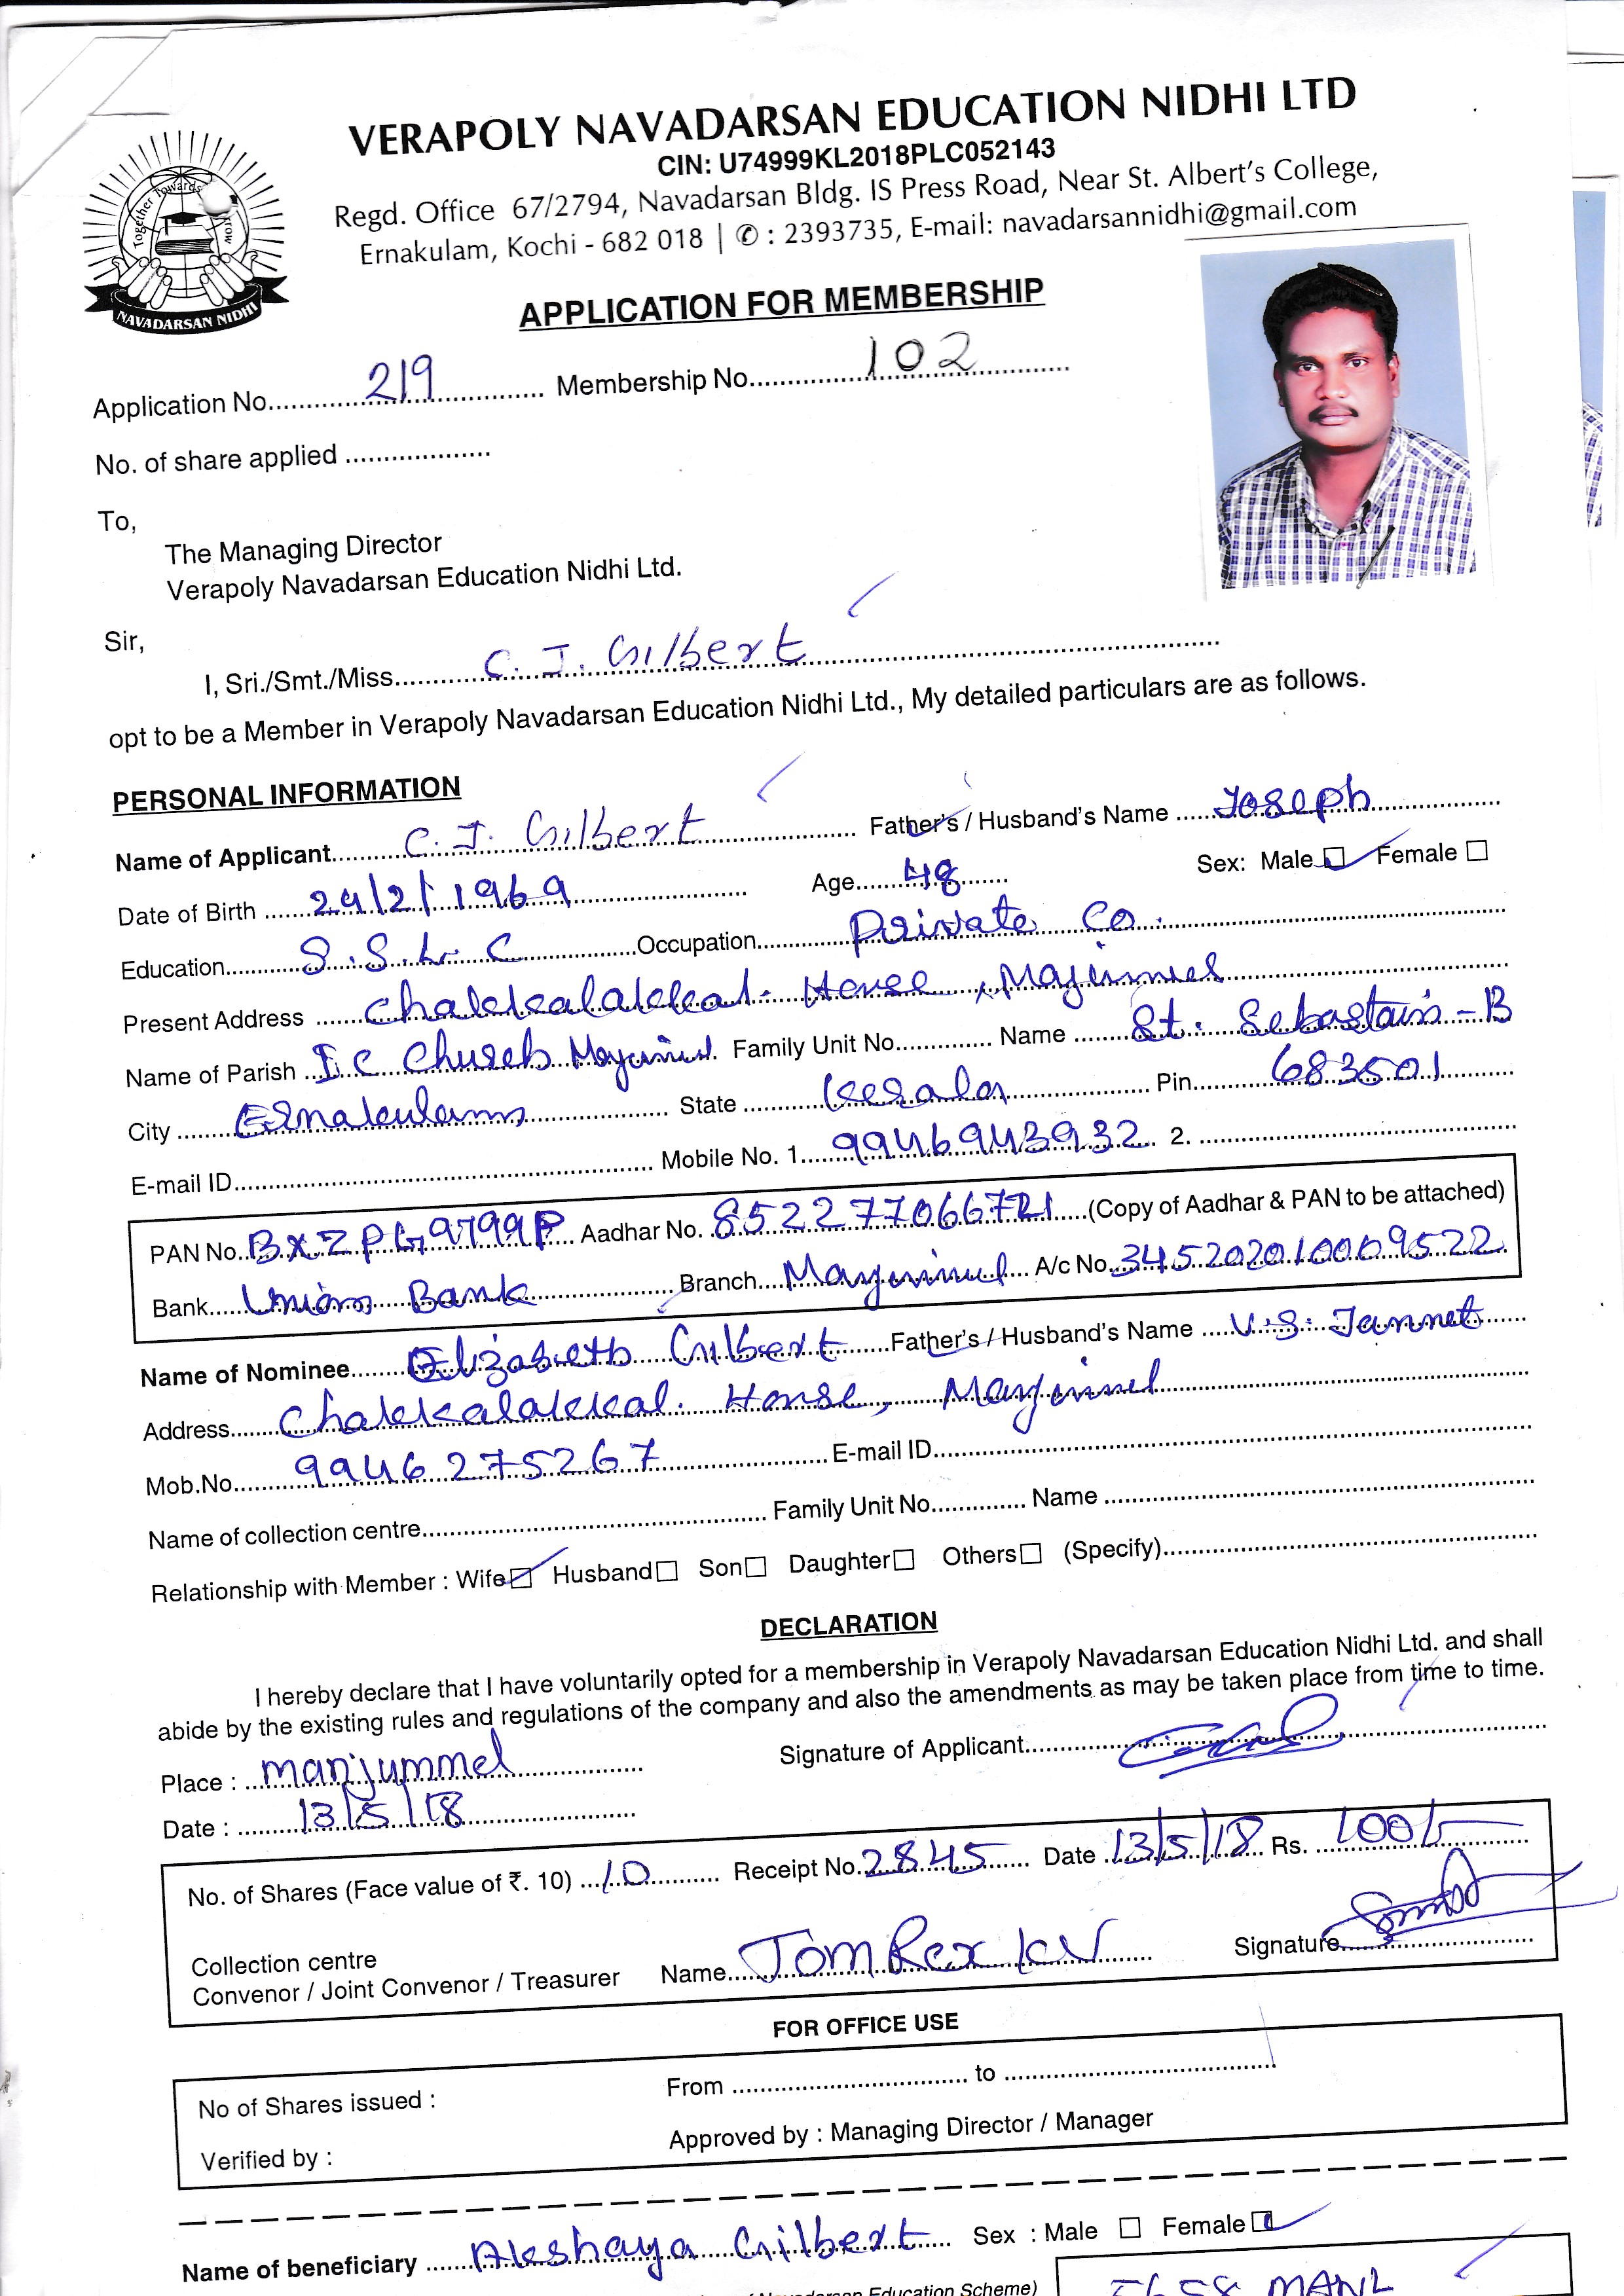 VERAPOLY NAVADARSAN EDUCATION NIDHI LTD
CIN: U74999KL2018PLC052143
Regd. Office 67/2794, Navadarsan Bldg. IS Press Road, Near St. Albert's College,
Ernakulam, Kochi - 682 018 | ✆ : 2393735, E-mail: navadarsannidhi@gmail.com
Together Towards
NAVADARSAN NIDHI
APPLICATION FOR MEMBERSHIP
Application No. 219 Membership No. 102
No. of share applied
To,
The Managing Director
Verapoly Navadarsan Education Nidhi Ltd.
Sir,
I, Sri./Smt./Miss. C. J. Gilbert
opt to be a Member in Verapoly Navadarsan Education Nidhi Ltd., My detailed particulars are as follows.
PERSONAL INFORMATION
Name of Applicant C. J. Gilbert Father's / Husband's Name Joseph
Date of Birth 24/2/1969 Age 48 Sex: Male Female
Education S.S.L.C Occupation Private Co.
Present Address Chakkalakkal. House, Manjummel
Name of Parish I C Church Manjummel. Family Unit No. Name St. Sebastain's - B
City Ernakulam State Kerala Pin 683501
E-mail ID Mobile No. 1. 9946943932 2.
PAN No. BXZPG9799P Aadhar No. 852277066721 (Copy of Aadhar & PAN to be attached)
Bank Union Bank Branch Manjummel A/c No. 345202010009522
Name of Nominee Elizabeth Gilbert Father's / Husband's Name V.S. Jannet
Address Chakkalakkal. House, Manjummel
Mob.No. 9946275267 E-mail ID
Name of collection centre Family Unit No. Name
Relationship with Member : Wife Husband Son Daughter Others (Specify)
DECLARATION
I hereby declare that I have voluntarily opted for a membership in Verapoly Navadarsan Education Nidhi Ltd. and shall
abide by the existing rules and regulations of the company and also the amendments as may be taken place from time to time.
Place : manjummel Signature of Applicant
Date : 13/5/18
No. of Shares (Face value of ₹. 10) 10 Receipt No. 2845 Date 13/5/18 Rs. 100/-
Collection centre
Convenor / Joint Convenor / Treasurer Name Tom Rex K V Signature
FOR OFFICE USE
No of Shares issued : From to
Verified by : Approved by : Managing Director / Manager
Name of beneficiary Akshaya Gilbert Sex : Male Female
Education Scheme)